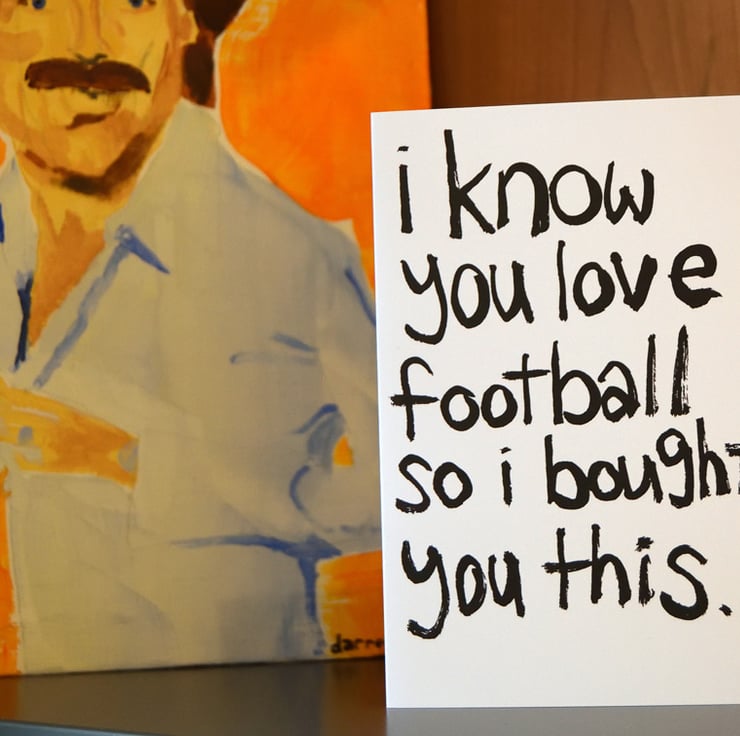 i know
you love
football
so i bought
you this.
darre